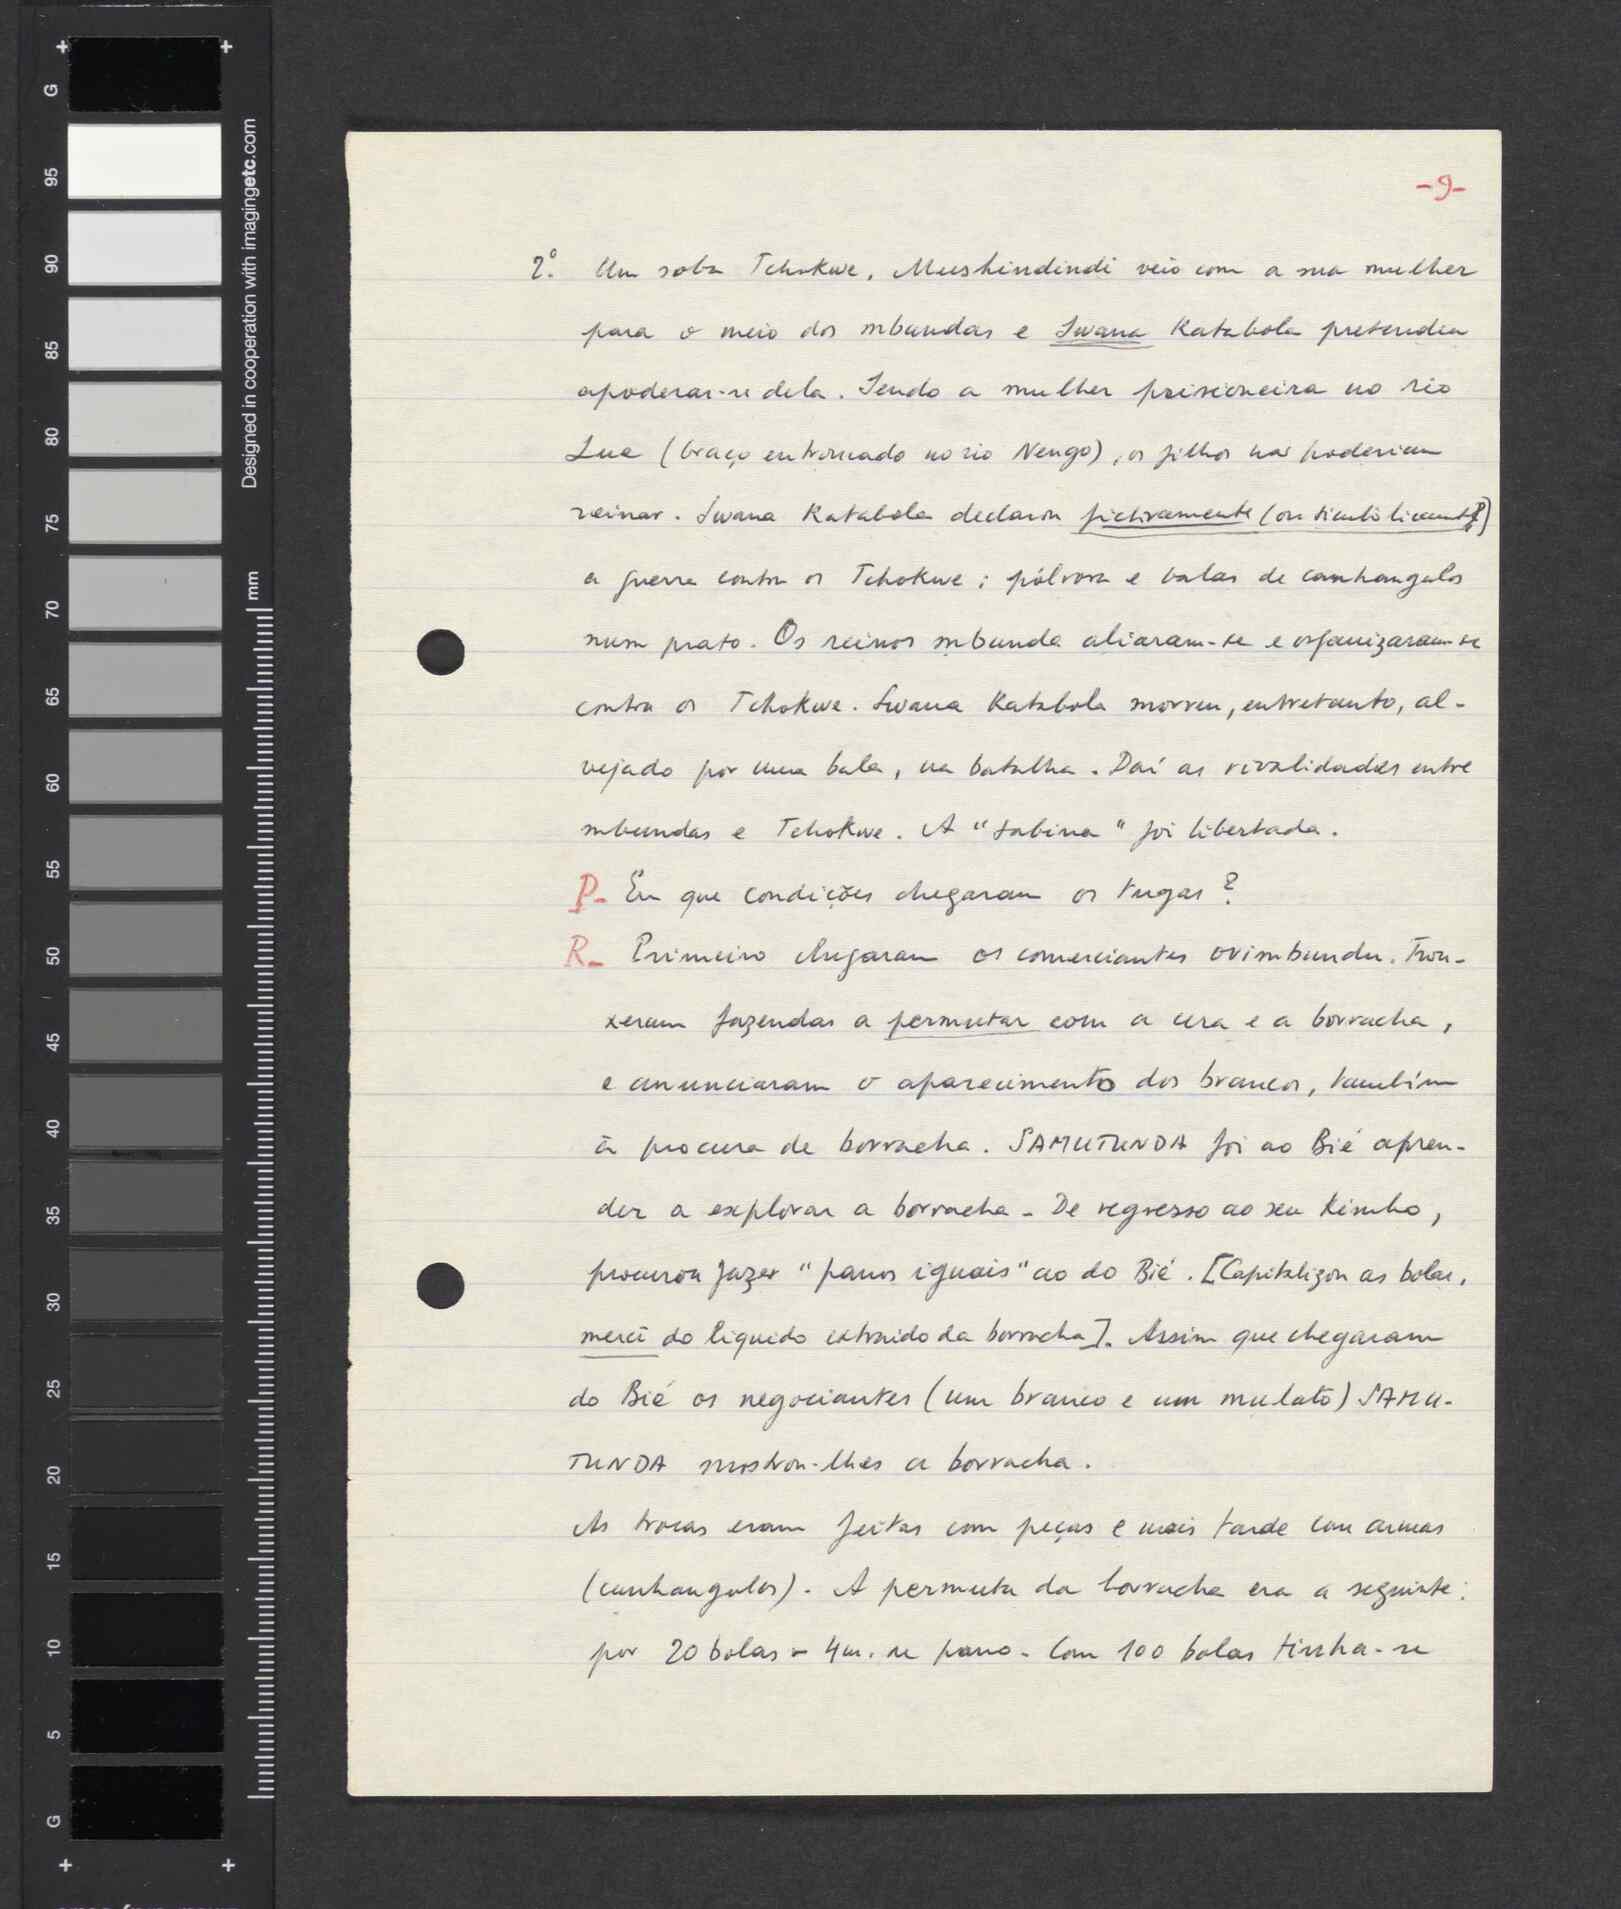 -9-
2º. Um soba Tchokwe, Mushindindi veio com a sua mulher
para o meio dos mbundas e Swana Katabola pretendeu
apoderar-se dela. Sendo a mulher prisioneira no rio
Lue (braço entroncado no rio Nengo), os filhos não poderiam
reinar. Swana Katabola declarou fictivamente (ou simbolicamente?)
a guerra contra os Tchokwe: pólvora e balas de canhangulos
num prato. Os reinos mbunda aliaram-se e organizaram-se
contra os Tchokwe. Swana Katabola morreu, entretanto, al-
vejado por uma bala, na batalha. Daí as rivalidades entre
mbundas e Tchokwe. A "sabina" foi libertada.
P- Em que condições chegaram os tugas?
R- Primeiro chegaram os comerciantes ovimbundu. Trou-
xeram fazendas a permutar com a cera e a borracha,
e anunciaram o aparecimento dos brancos, também
à procura de borracha. SAMUTUNDA foi ao Bié apren-
der a explorar a borracha - De regresso ao seu Kimbo,
procurou fazer "panos iguais" ao do Bié. [Capitalizou as bolas,
merci do liquido extraido da borracha]. Assim que chegaram
do Bié os negociantes (um branco e um mulato) SAMU-
TUNDA mostrou-lhes a borracha.
As trocas eram feitas com peças e mais tarde com armas
(canhangulos). A permuta da borracha era a seguinte:
por 20 bolas - 4m. de pano - Com 100 bolas tinha-se
G
95
90
85
80
75
70
65
60
55
50
45
40
35
30
25
20
15
10
5
G
Designed in cooperation with imagingetc.com
mm